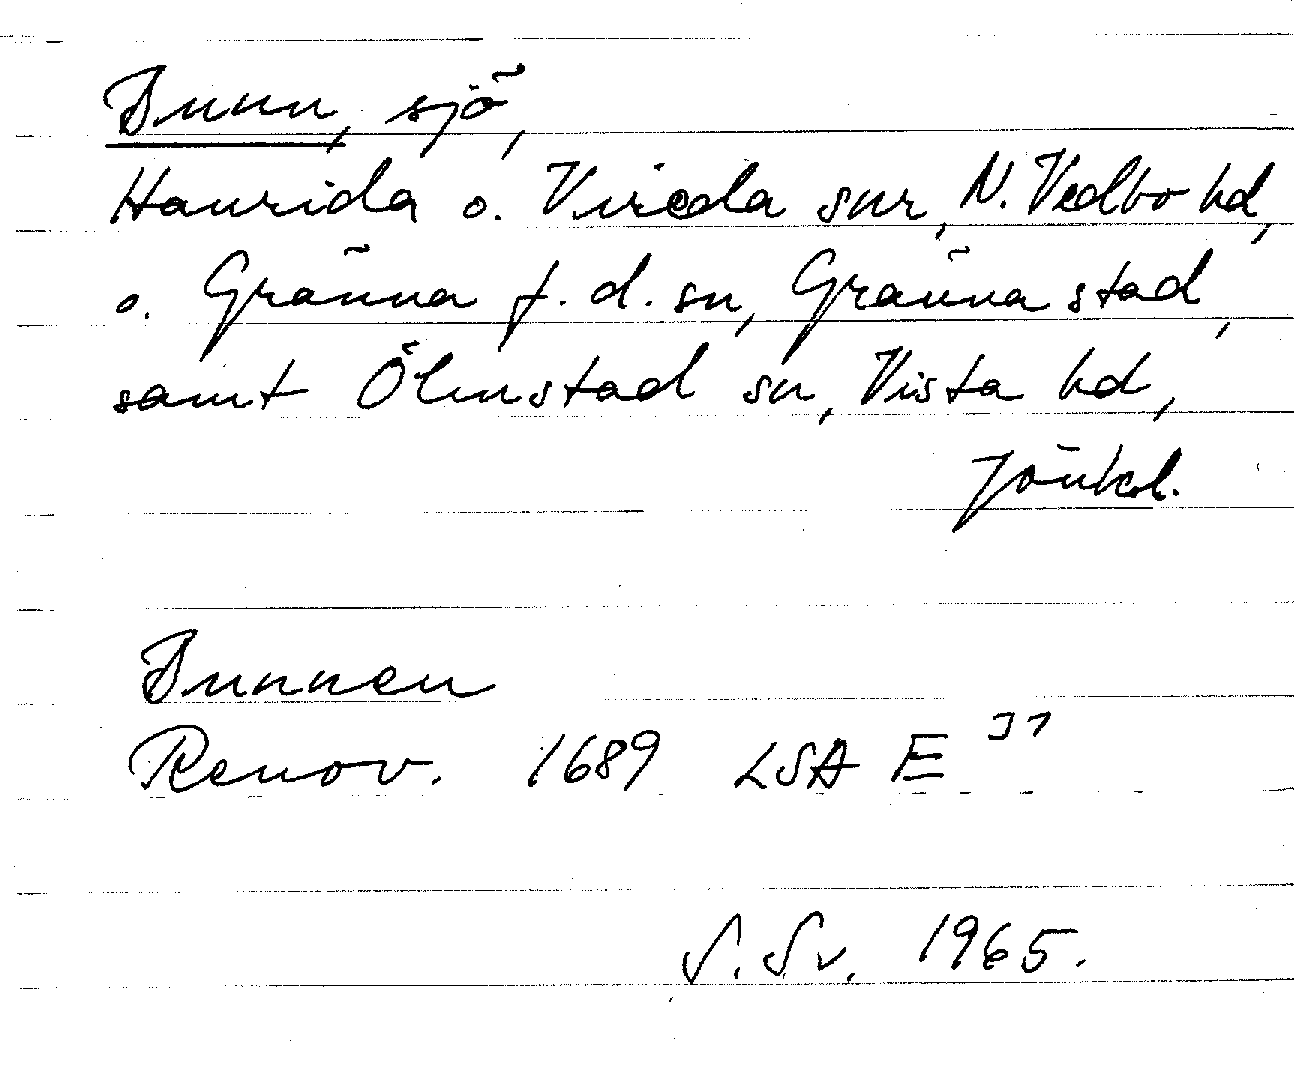 Bunn, sjö,
Haurida o. Vireda snr, N. Vedbo hd,
o. Gränna f. d. sn, Gränna stad,
samt Ölmstad sn, Vista hd,
Jönk.l.
Bunnen
Renov. 1689 LSA E 31
S. Sv. 1965.